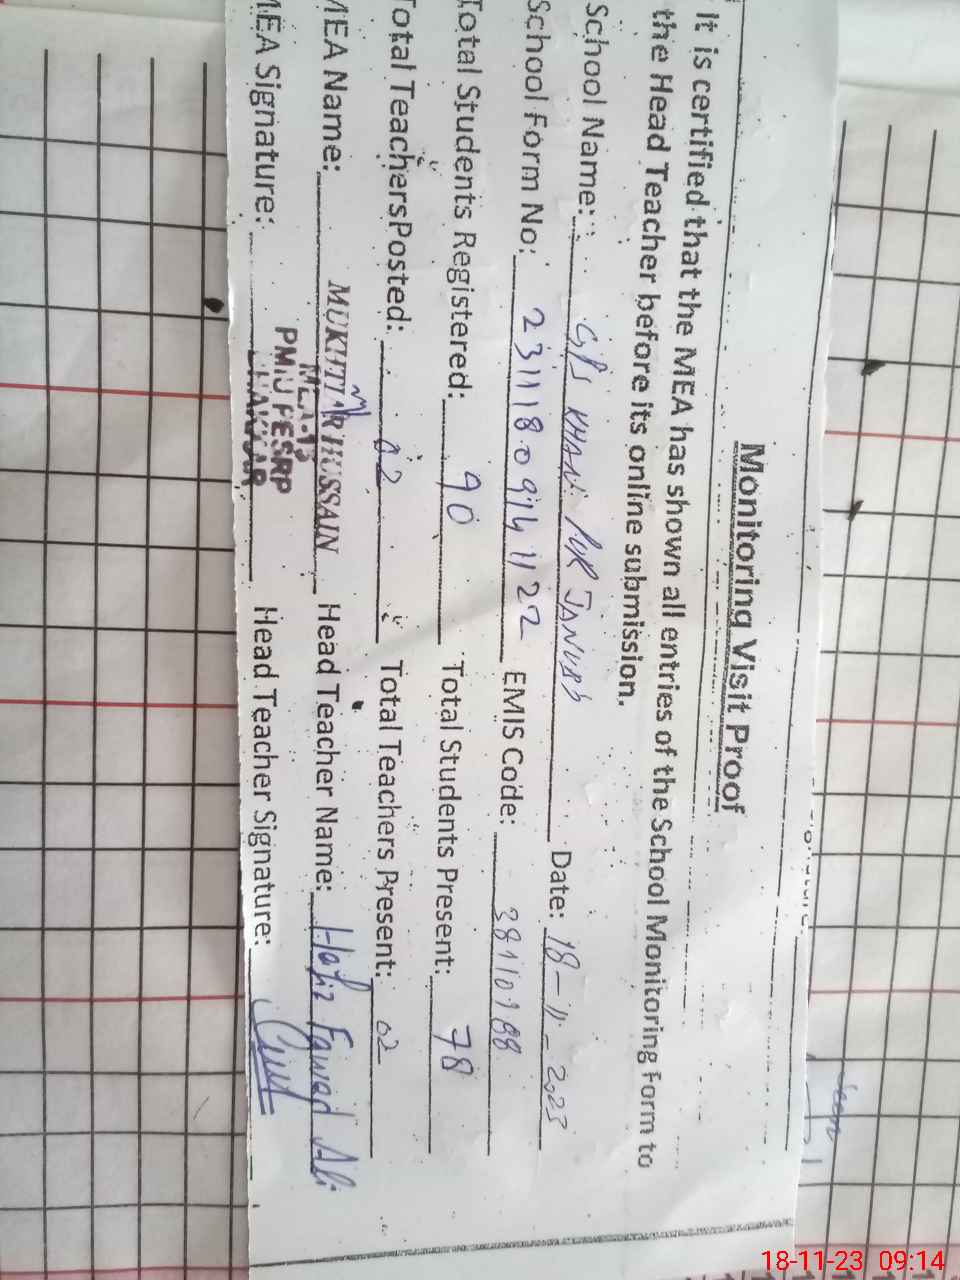 Monitoring Visit Proof
It is certified that the MEA has shown all entries of the School Monitoring Form to
the Head Teacher before its online submission.
School Name: GPS KHAN PUR JANUBI Date: 18-11-2023
School Form No: EMIS Code:
Total Students Registered: 90 Total Students Present: 78
Total Teachers Posted: 02 Total Teachers Present: 02
MEA Name: MUKHTIAR HUSSAIN Head Teacher Name: Hafiz Fawad Ali
MEA Signature: MEA-13 Head Teacher Signature:
PMIU PESRP
BHAKKAR
Seen
18-11-23 09:14